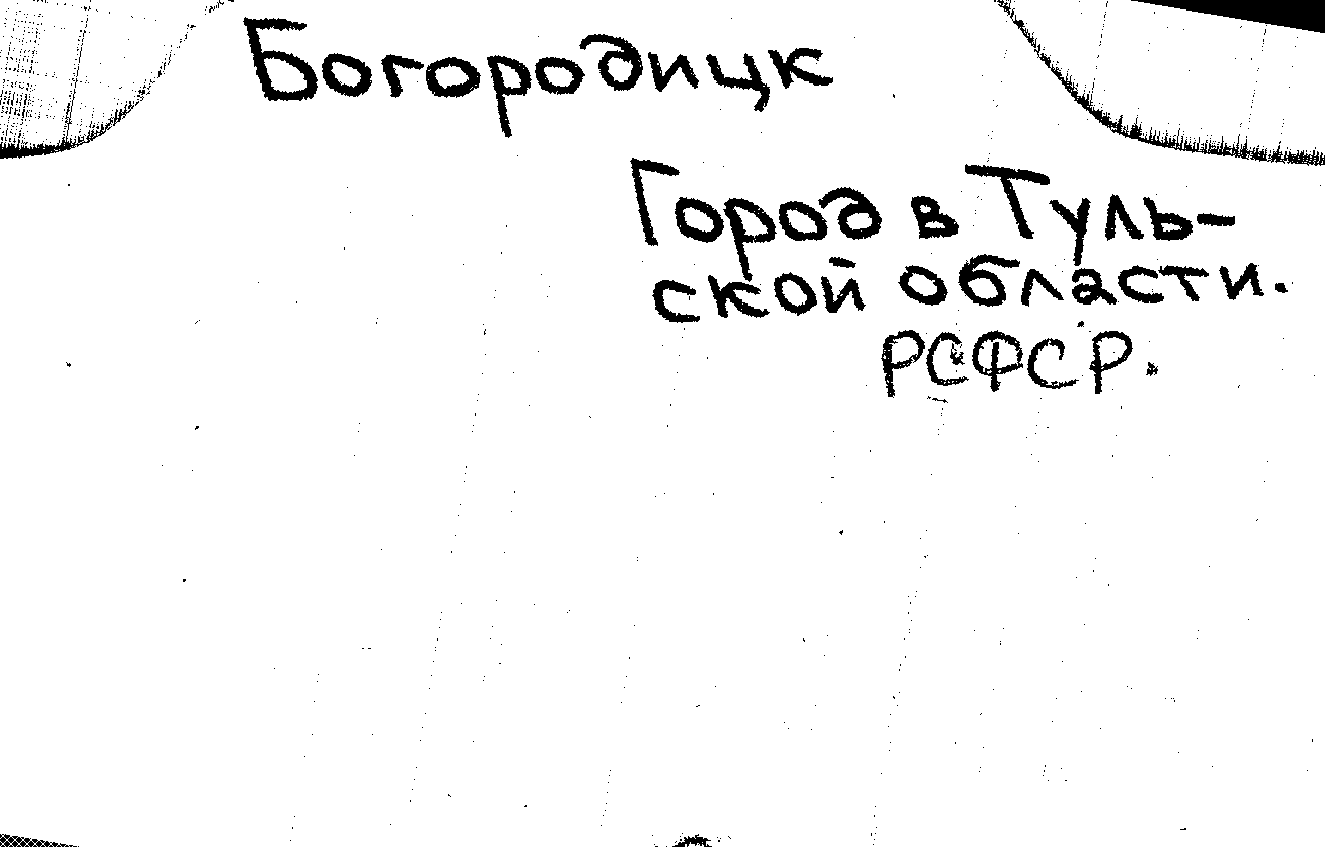 Богородицк
Город в Туль-
ской области.
РСФСР.